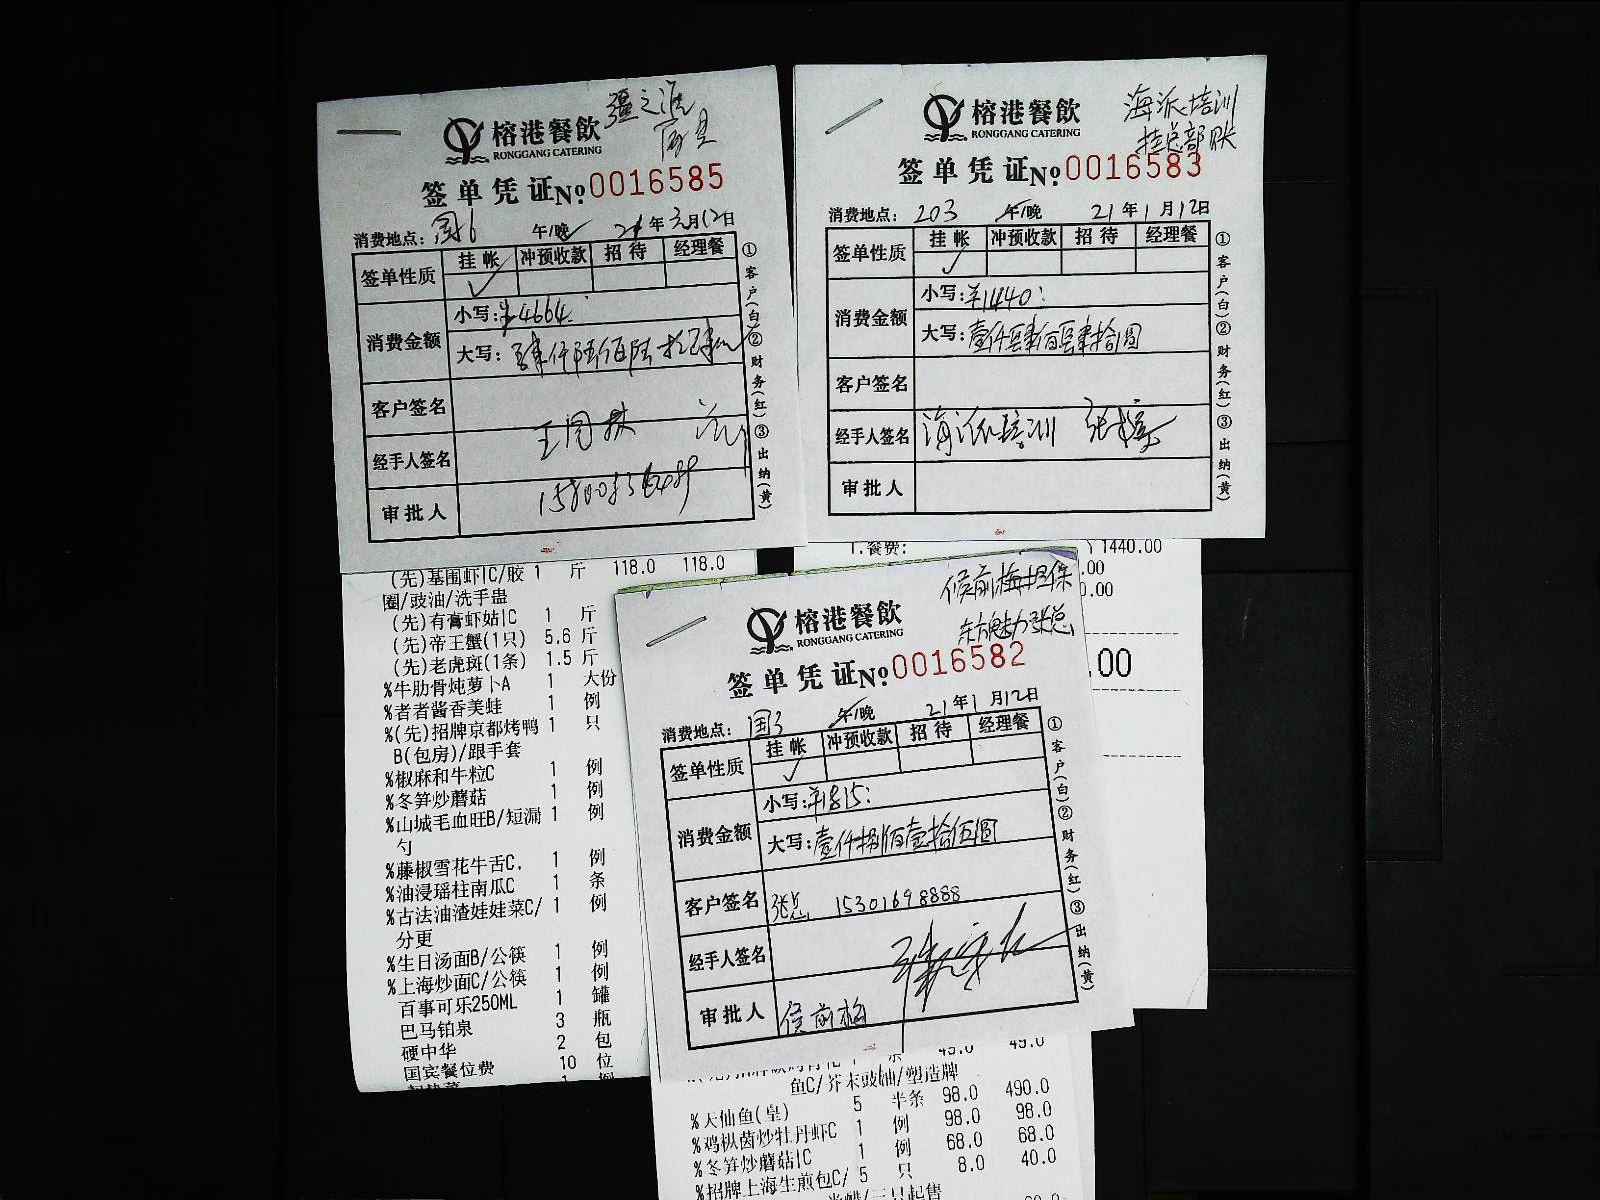 榕港餐飲
RONGGANG CATERING
签单凭证No.0016585
消费地点: 国6 午/晚 21年1月12日
签单性质 挂帐 冲预收款 招待 经理餐
✓
消费金额 小写:¥4664
大写: 肆仟陆佰陆拾肆
客户签名
经手人签名
审批人
①客户(白)②财务(红)③出纳(黄)
(先)基围虾|C/胶 1 斤 118.0 118.0
圈/豉油/洗手盅
(先)有膏虾姑|C 1 斤
(先)帝王蟹(1只) 5.6 斤
(先)老虎斑(1条) 1.5 斤
%牛肋骨炖萝卜A 1 大份
%者者酱香美蛙 1 例
%(先)招牌京都烤鸭 1 只
B(包房)/跟手套
%椒麻和牛粒C 1 例
%冬笋炒蘑菇 1 例
%山城毛血旺B/短漏 1 例
勺
%藤椒雪花牛舌C. 1 例
%油浸瑶柱南瓜C 1 条
%古法油渣娃娃菜C/ 1 例
分更
%生日汤面B/公筷 1 例
%上海炒面C/公筷 1 例
百事可乐250ML 1 罐
巴马铂泉 3 瓶
硬中华 2 包
国宾餐位费 10 位
海派培训
挂总部账
榕港餐飲
RONGGANG CATERING
签单凭证No.0016583
消费地点: 203 午/晚 21年1月12日
签单性质 挂帐 冲预收款 招待 经理餐
✓
消费金额 小写:¥1440:
大写:壹仟肆佰肆拾圆
客户签名
经手人签名 海派培训
审批人
①客户(白)②财务(红)③出纳(黄)
1.餐费: ¥1440.00
.00
0.00
.00
候前梅担保
东方魅力张总
榕港餐飲
RONGGANG CATERING
签单凭证No.0016582
消费地点: 国3 午/晚 21年1月12日
签单性质 挂帐 冲预收款 招待 经理餐
✓
消费金额 小写:¥1815:
大写:壹仟捌佰壹拾伍圆
客户签名 张总 15301698888
经手人签名
审批人 侯前梅
①客户(白)②财务(红)③出纳(黄)
49.0 49.0
鱼C/芥末豉油/塑造牌
%大仙鱼(皇) 5 半条 98.0 490.0
%鸡枞菌炒牡丹虾C 1 例 98.0 98.0
%冬笋炒蘑菇|C 1 例 68.0 68.0
%招牌上海生煎包C/ 5 只 8.0 40.0